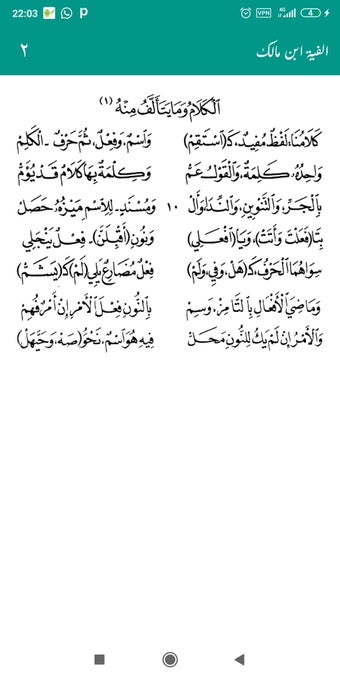 22:03 VPN 4G 4
الفية ابن مالك ٢
الْكَلَامُ وَمَا يَتَأَلَّفُ مِنْهُ (١)
كَلَامُنَا: لَفْظٌ مُفِيدٌ، كَـ(اسْتَقِمْ) وَاسْمٌ، وَفِعْلٌ، ثُمَّ حَرْفٌ - الْكَلِمْ
وَاحِدُهُ: كَلِمَةٌ، وَالْقَوْلُ عَمّْ وَكِلْمَةٌ بِهَا كَلَامٌ قَدْ يُؤَمّْ
بِالْجَرِّ، وَالتَّنْوِينِ، وَالنِّدَا، وَأَلْ ١٠ وَمُسْنَدٍ - لِلِاسْمِ مَيْزُهُ حَصَلْ
بِتَا (فَعَلْتَ وَأَتَتْ)، وَيَا (افْعَلِي) وَنُونِ (أَقْبِلَنَّ) - فِعْلٌ يَنْجَلِي
سِوَاهُمَا الْحَرْفُ، كَـ(هَلْ، وَفِي، وَلَمْ) فِعْلٌ مُضَارِعٌ يَلِي (لَمْ) كَـ(يَشَمّْ)
وَمَاضِيَ الْأَفْعَالِ بِالتَّا مِزْ، وَسِمْ بِالنُّونِ فِعْلَ الْأَمْرِ، إِنْ أَمْرٌ فُهِمْ
وَالْأَمْرُ إِنْ لَمْ يَكُ لِلنُّونِ مَحَلّْ فِيهِ هُوَ اسْمٌ، نَحْوُ (صَهْ، وَحَيَّهَلْ)